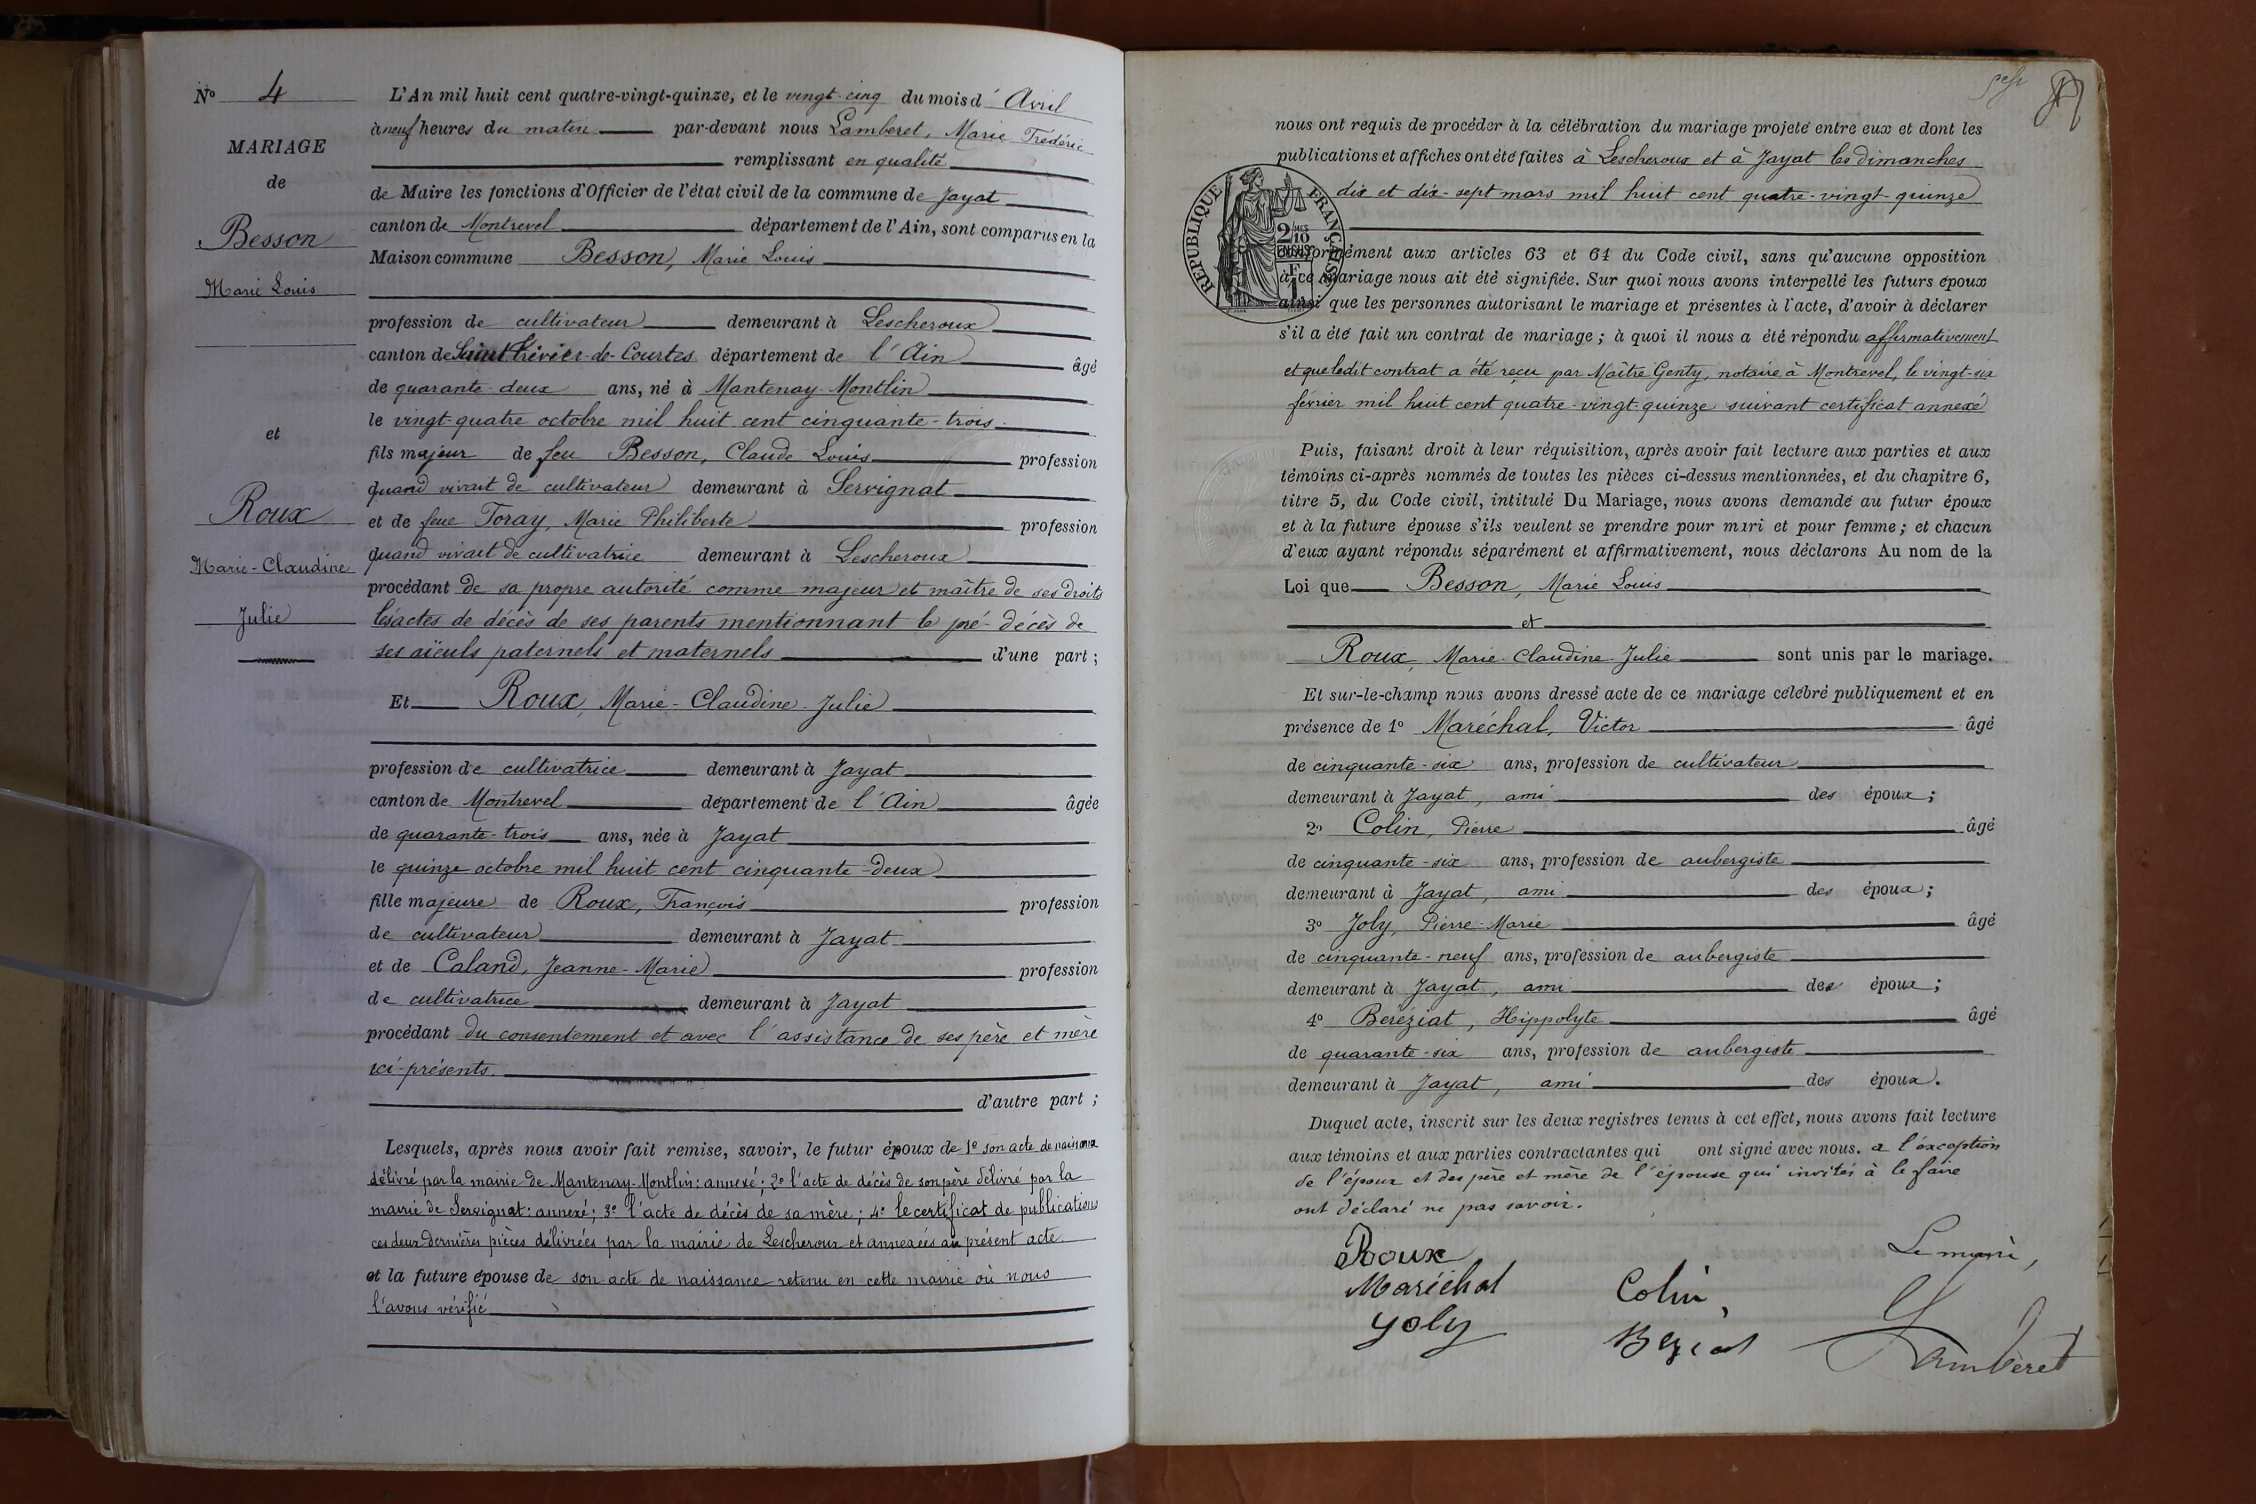 Nº 4
MARIAGE
de
Besson
Marie Louis
et
Roux
Marie-Claudine
Julie
L'An mil huit cent quatre-vingt-quinze, et le vingt-cinq du mois d'Avril
à neuf heures du matin par-devant nous Lamberet, Marie Frédéric
remplissant en qualité
de Maire les fonctions d'Officier de l'état civil de la commune de Jayat
canton de Montrevel département de l'Ain, sont comparus en la
Maison commune Besson, Marie Louis
profession de cultivateur demeurant à Lescheroux
canton de Saint Trivier-de-Courtes département de l'Ain âgé
de quarante-deux ans, né à Mantenay-Montlin
le vingt-quatre octobre mil huit cent cinquante-trois
fils majeur de feu Besson, Claude Louis profession
quand vivait de cultivateur demeurant à Servignat
et de feue Toray, Marie Philiberte profession
quand vivait de cultivatrice demeurant à Lescheroux
procédant de sa propre autorité comme majeur et maître de ses droits
les actes de décès de ses parents mentionnant le pré-décès de
ses aïeuls paternels et maternels d'une part ;
Et Roux, Marie-Claudine-Julie
profession de cultivatrice demeurant à Jayat
canton de Montrevel département de l'Ain âgée
de quarante-trois ans, née à Jayat
le quinze octobre mil huit cent cinquante-deux
fille majeure de Roux, François profession
de cultivateur demeurant à Jayat
et de Caland, Jeanne-Marie profession
de cultivatrice demeurant à Jayat
procédant du consentement et avec l'assistance de ses père et mère
ici-présents
d'autre part ;
Lesquels, après nous avoir fait remise, savoir, le futur époux de 1º son acte de naissance
délivré par la mairie de Mantenay-Montlin : annexé ; 2º l'acte de décès de son père délivré par la
mairie de Servignat : annexé ; 3º l'acte de décès de sa mère ; 4º le certificat de publications
ces deux dernières pièces délivrées par la mairie de Lescheroux et annexées au présent acte
et la future épouse de son acte de naissance retenu en cette mairie où nous
l'avons vérifié
nous ont requis de procéder à la célébration du mariage projeté entre eux et dont les
publications et affiches ont été faites à Lescheroux et à Jayat les dimanches
dix et dix-sept mars mil huit cent quatre-vingt-quinze
RÉPUBLIQUE FRANÇAISE
2/10
EN SUS
conformément aux articles 63 et 64 du Code civil, sans qu'aucune opposition
à ce mariage nous ait été signifiée. Sur quoi nous avons interpellé les futurs époux
ainsi que les personnes autorisant le mariage et présentes à l'acte, d'avoir à déclarer
s'il a été fait un contrat de mariage ; à quoi il nous a été répondu affirmativement
et que ledit contrat a été reçu par Maître Genty, notaire à Montrevel, le vingt-six
février mil huit cent quatre-vingt-quinze suivant certificat annexé
Puis, faisant droit à leur réquisition, après avoir fait lecture aux parties et aux
témoins ci-après nommés de toutes les pièces ci-dessus mentionnées, et du chapitre 6,
titre 5, du Code civil, intitulé Du Mariage, nous avons demandé au futur époux
et à la future épouse s'ils veulent se prendre pour mari et pour femme ; et chacun
d'eux ayant répondu séparément et affirmativement, nous déclarons Au nom de la
Loi que Besson, Marie Louis
et
Roux, Marie-Claudine-Julie sont unis par le mariage.
Et sur-le-champ nous avons dressé acte de ce mariage célébré publiquement et en
présence de 1º Maréchal, Victor âgé
de cinquante-six ans, profession de cultivateur
demeurant à Jayat, ami des époux ;
2º Colin, Pierre âgé
de cinquante-six ans, profession de aubergiste
demeurant à Jayat, ami des époux ;
3º Joly, Pierre-Marie âgé
de cinquante-neuf ans, profession de aubergiste
demeurant à Jayat, ami des époux ;
4º Beréziat, Hippolyte âgé
de quarante-six ans, profession de aubergiste
demeurant à Jayat, ami des époux.
Duquel acte, inscrit sur les deux registres tenus à cet effet, nous avons fait lecture
aux témoins et aux parties contractantes qui ont signé avec nous. a l'exception
de l'époux et des père et mère de l'épouse qui invités à le faire
ont déclaré ne pas savoir.
Roux
Le maire,
Maréchal
Colin,
Joly
Beziat
Lamberet